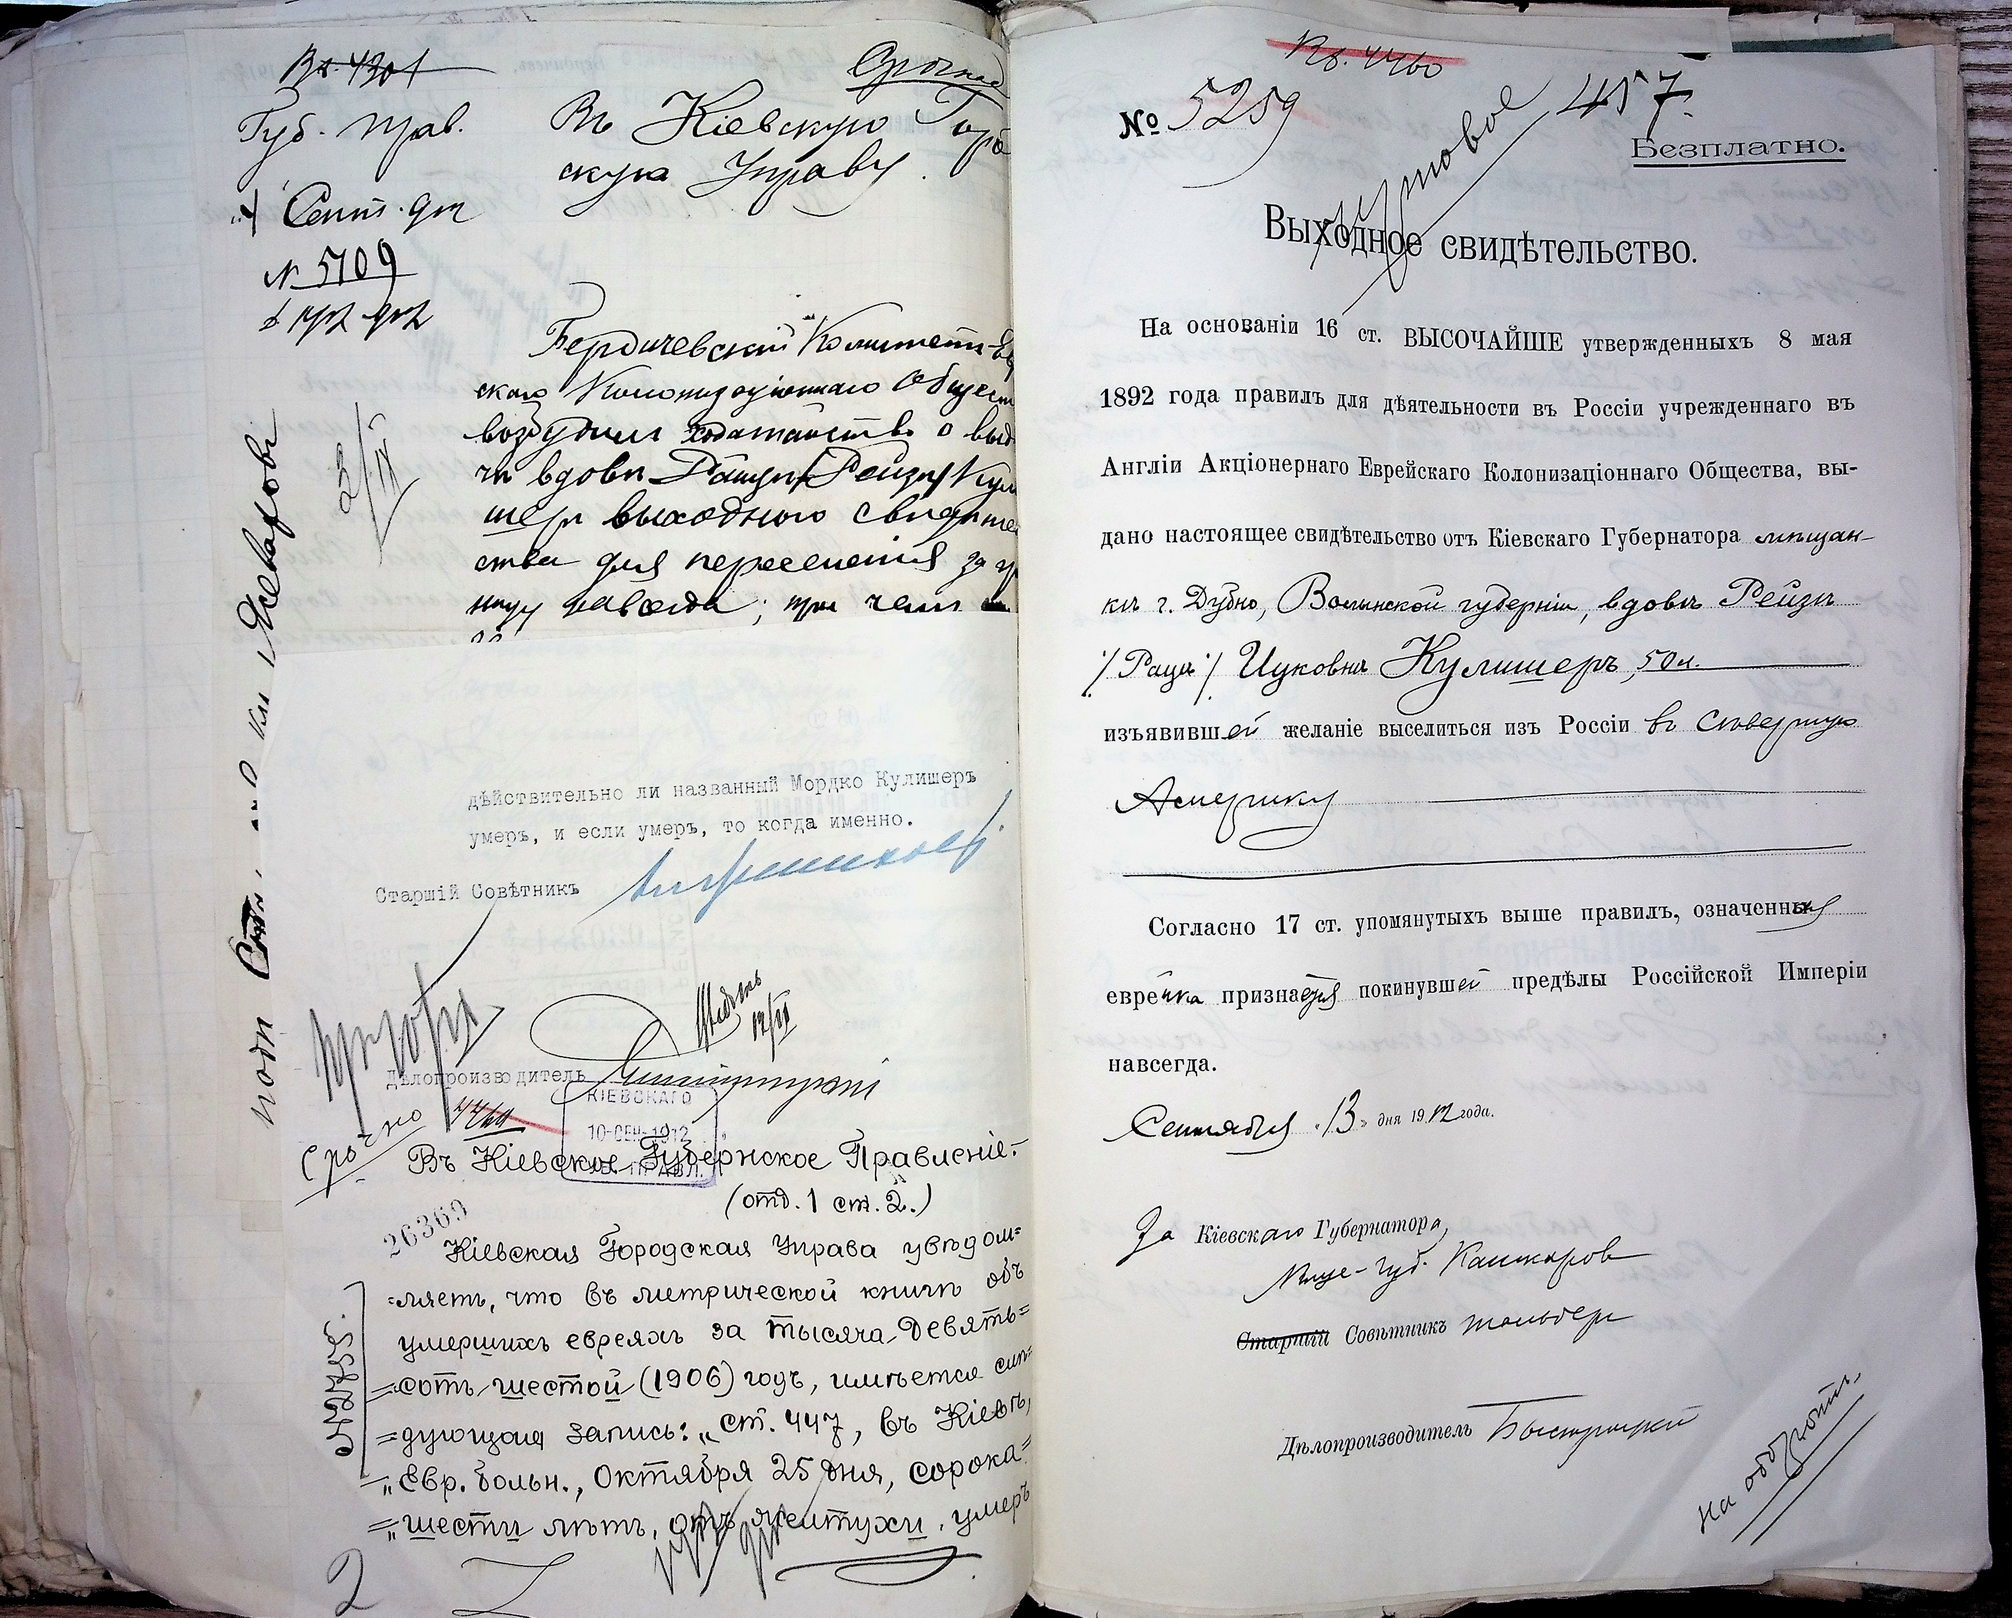 Вх. 4301
Губ. прав.
4 Сент. дня
№ 5709
Срочное
Въ Кіевскую Город
скую Управу.
3/IX
Бердичевскій Комитетъ Ев
скаго Колонизаціоннаго Общест
возбудилъ ходатайство о выд
чѣ вдовѣ Рацѣ /Рейзѣ/ Кул
шеръ выходного свидѣтель
ства для переселенія за гр
ницу навсегда; при чемъ
дѣйствительно ли названный Мордко Кулишеръ
умеръ, и если умеръ, то когда именно.
Старшій Совѣтникъ
12/IX
Дѣлопроизводитель
Срочно 4460
КІЕВСКАГО
10-СЕН-1912
ГУБ. ПРАВЛ.
Въ Кіевское Губернское Правленіе.
(отд. 1 ст. 2.)
26369
Кіевская Городская Управа увѣдом=
=ляетъ, что въ метрической книгѣ объ
умершихъ евреяхъ за тысяча девять=
=сотъ шестой (1906) годъ, имѣется слѣ=
=дующая запись: „ст. 447, въ Кіевѣ,
=„Евр. больн., Октября 25 дня, сорока=
=„шести лѣтъ, отъ желтухи, умеръ
Вх. 4460
№ 5259
457.
Безплатно.
Выходное свидѣтельство.
На основаніи 16 ст. ВЫСОЧАЙШЕ утвержденныхъ 8 мая
1892 года правилъ для дѣятельности въ Россіи учрежденнаго въ
Англіи Акціонернаго Еврейскаго Колонизаціоннаго Общества, вы-
дано настоящее свидѣтельство отъ Кіевскаго Губернатора мѣщан-
кѣ г. Дубно, Волынской губерніи, вдовѣ Рейзѣ
/Рацѣ/ Ицковнѣ Кулишеръ, 50 л.
изъявившей желаніе выселиться изъ Россіи въ Сѣверную
Америку
Согласно 17 ст. упомянутыхъ выше правилъ, означенная
еврейка признается покинувшей предѣлы Россійской Имперіи
навсегда.
Сентября „13„ дня 1912 года.
За Кіевскаго Губернатора,
Вице-Губ. Кашкаров
Старшій Совѣтникъ
Дѣлопроизводитель Быстрицкій
На оборотѣ.